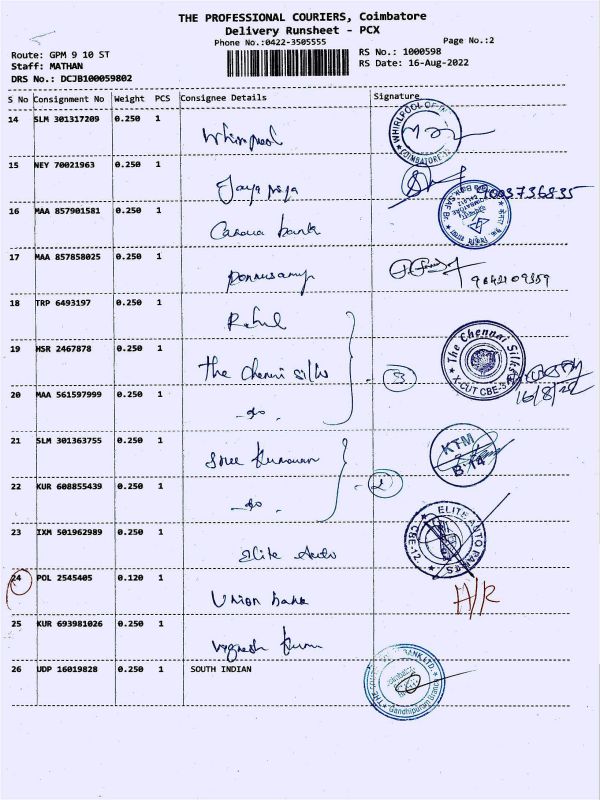 THE PROFESSIONAL COURIERS, Coimbatore
Delivery Runsheet - PCX
Phone No.:0422-3505555 Page No.:2
Route: GPM 9 10 ST RS No.: 1000598
Staff: MATHAN RS Date: 16-Aug-2022
DRS No.: DCJB100059802
S No Consignment No Weight PCS Consignee Details Signature
14 SLM 301317209 0.250 1
Whirlpool WHIRLPOOL OF COIMBATORE-12
15 NEY 70021963 0.250 1
Jaya 9003736835
16 MAA 857901581 0.250 1
Canara bank
17 MAA 857858025 0.250 1
Ponnusamy 9842109359
18 TRP 6493197 0.250 1
Rahul
19 HSR 2467878 0.250 1 The Chennai Silks
the Chennai silks 3 X-CUT CBE-
16/8/22
20 MAA 561597999 0.250 1
-do-
21 SLM 301363755 0.250 1 KTM
Sree B-14
22 KUR 608855439 0.250 1
-do- 2
23 IXM 501962989 0.250 1 ELITE AUTO PARTS
Elite Auto CBE-12
24 POL 2545405 0.120 1
Union bank H/R
25 KUR 693981026 0.250 1
Vignesh
26 UDP 16019828 0.250 1 SOUTH INDIAN BANK LTD.
Gandhipuram Branch